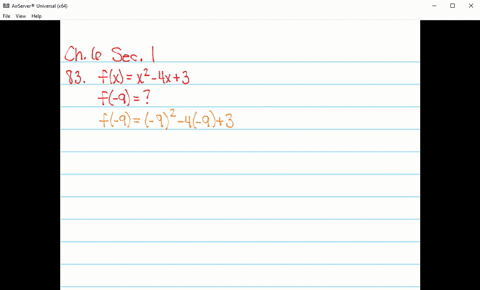 AirServer® Universal (x64)
File View Help
Ch. 6 Sec. 1
83. f(x) = x² - 4x + 3
f(-9) = ?
f(-9) = (-9)² - 4(-9) + 3